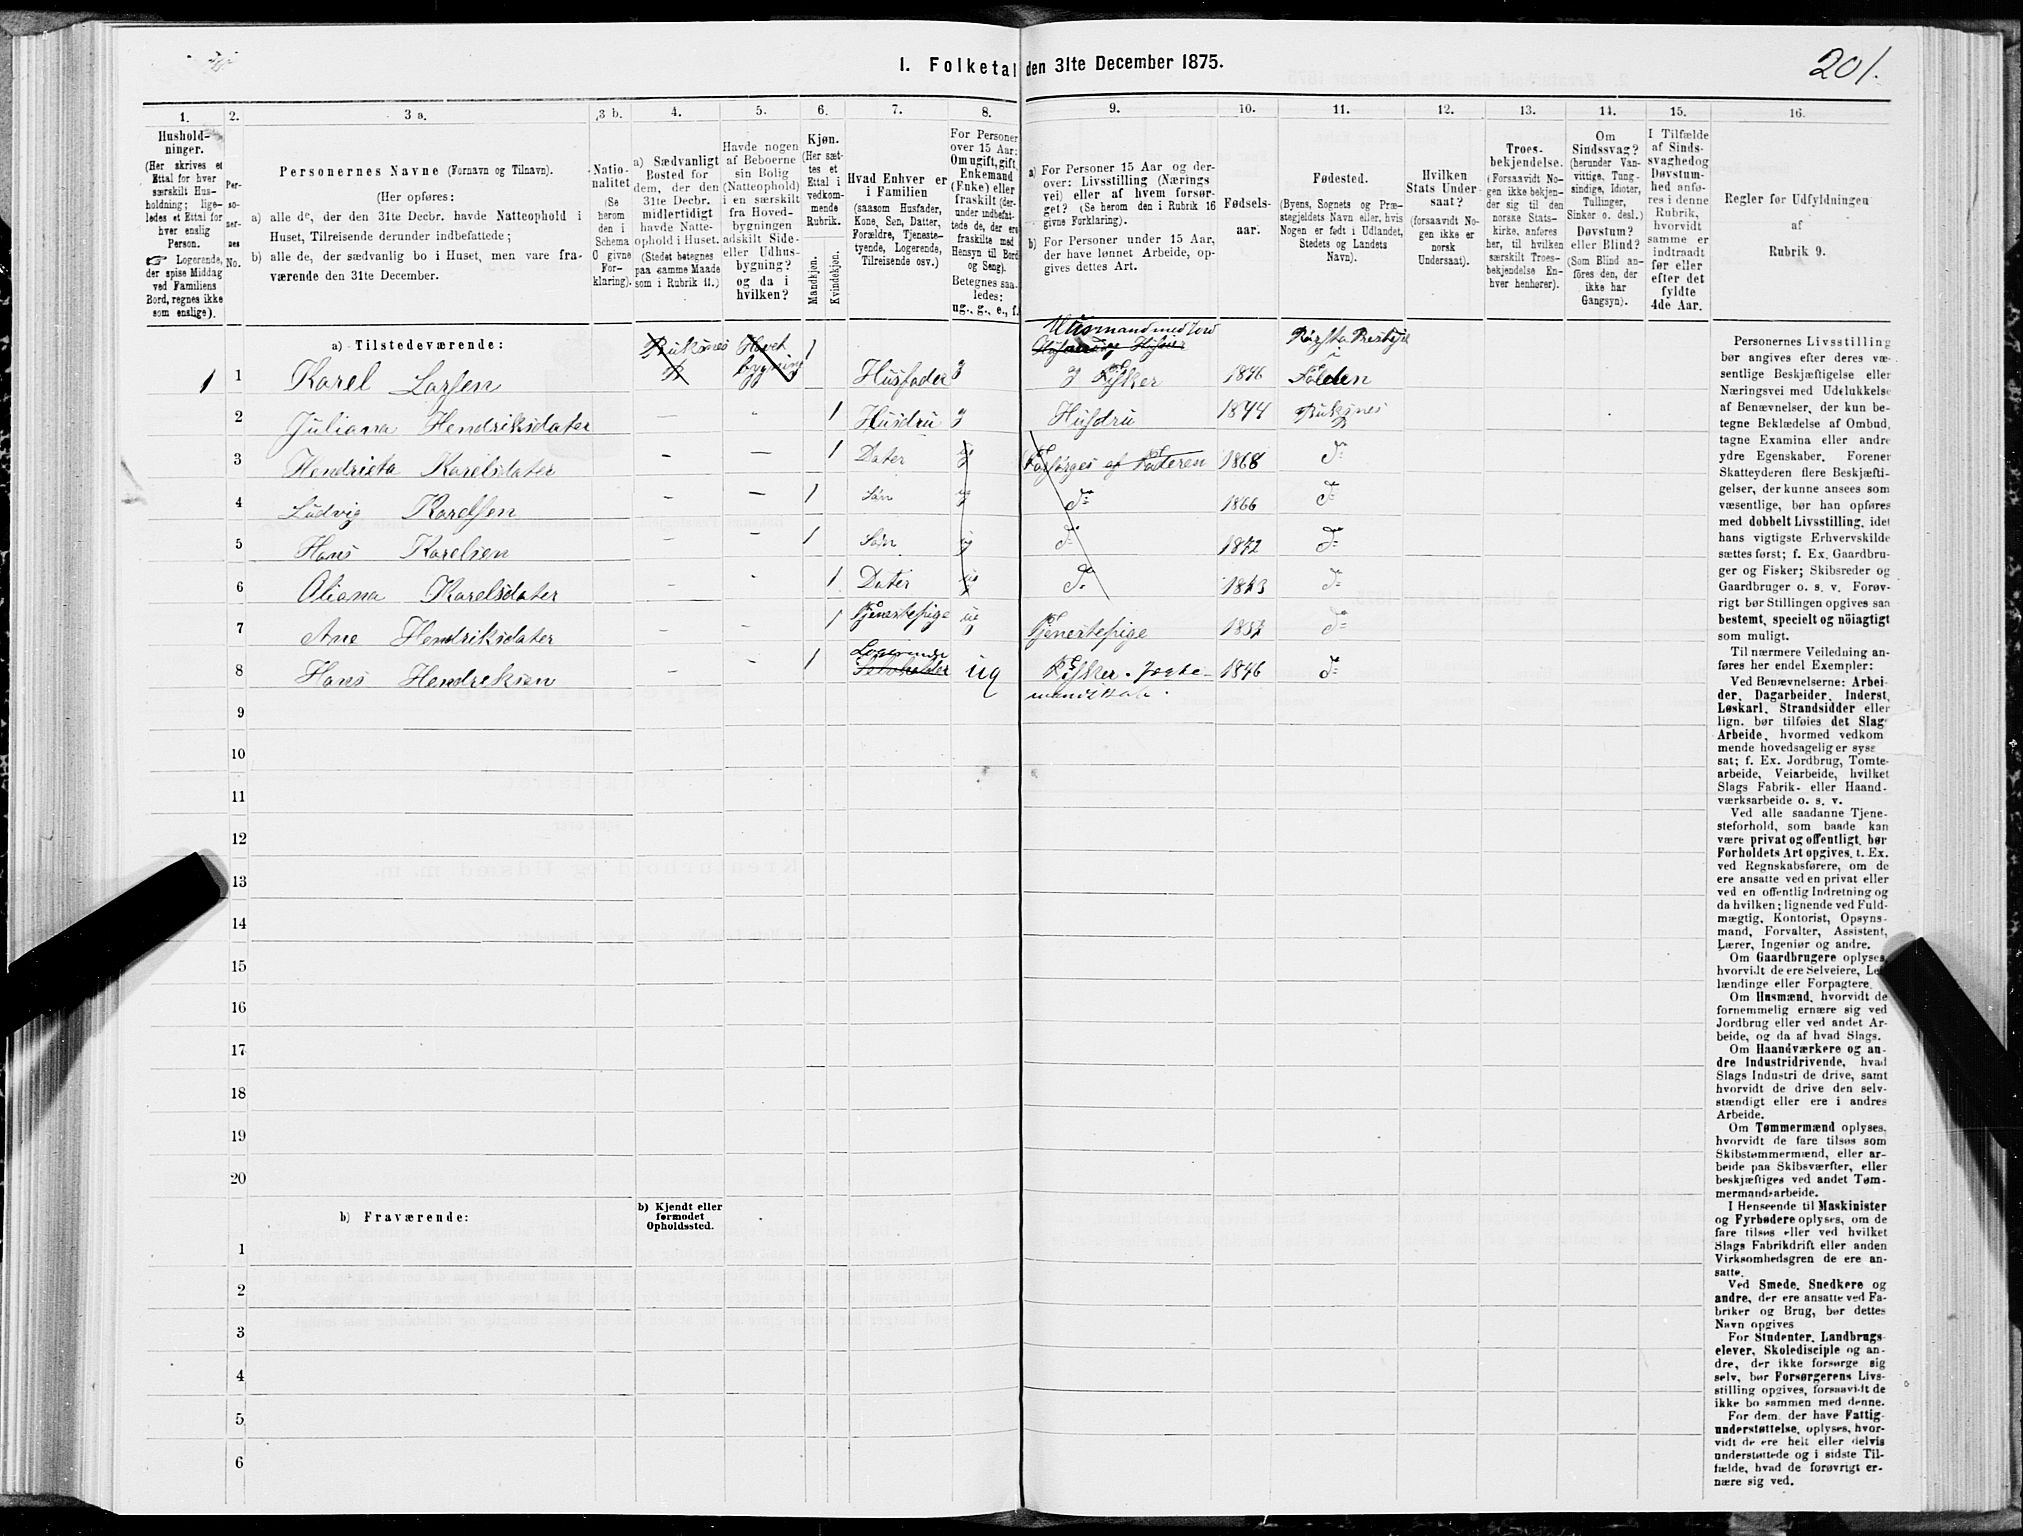 201.
I. Folketal den 31te December 1875.
1. 2. 3 a. 3 b. 4. 5. 6. 7. 8. 9. 10. 11. 12. 13. 14. 15. 16.
Hushold-
ninger.
(Her skrives et
Ettal for hver
særskilt Hus-
holdning; lige-
ledes et Ettal for
hver enslig
Person.
☞ Logerende,
der spise Middag
ved Familiens
Bord, regnes ikke
som enslige).
Per-
so-
ner-
nes
No.
Personernes Navne (Fornavn og Tilnavn).
(Her opføres:
a) alle de, der den 31te Decbr. havde Natteophold i
Huset, Tilreisende derunder indbefattede;
b) alle de, der sædvanlig bo i Huset, men vare fra-
værende den 31te December.
Natio-
nalitet
(Se
herom
den i
Schema
O givne
For-
klaring).
a) Sædvanligt
Bosted for
dem, der den
31te Decbr.
midlertidigt
havde Natte-
ophold i Huset.
(Stedet betegnes
paa samme Maade
som i Rubrik 11.)
Havde nogen
af Beboerne
sin Bolig
(Natteophold)
i en særskilt
fra Hoved-
bygningen
adskilt Side-
eller Udhus-
bygning?
og da i
hvilken?
Kjøn.
(Her sæt-
tes et
Ettal i
vedkom-
mende
Rubrik.
Mandkjøn.
Kvindekjøn.
Hvad Enhver er
i Familien
(saasom Husfader,
Kone, Søn, Datter,
Forældre, Tjeneste-
tyende, Logerende,
Tilreisende osv.)
For Personer
over 15 Aar:
Om ugift, gift,
Enkemand
(Enke) eller
fraskilt (der-
under indbefat-
tede de, der ere
fraskilte med
Hensyn til Bord
og Seng).
Betegnes saa-
ledes:
ug., g., e., f.
a) For Personer 15 Aar og der-
over: Livsstilling (Nærings
vei) eller af hvem forsør-
get? (Se herom den i Rubrik 16
givne Forklaring).
b) For Personer under 15 Aar,
der have lønnet Arbeide, op-
gives dettes Art.
Fødsels-
aar.
Fødested.
(Byens, Sognets og Præ-
stegjeldets Navn eller, hvis
Nogen er født i Udlandet,
Stedets og Landets
Navn).
Hvilken
Stats Under-
saat?
(forsaavidt No-
gen ikke er
norsk
Undersaat).
Troes-
bekjendelse.
(Forsaavidt No-
gen ikke bekjen-
der sig til den
norske Stats-
kirke, anføres
her, til hvilken
særskilt Troes-
bekjendelse En-
hver henhører).
Om
Sindssvag?
(herunder Van-
vittige, Tung-
sindige, Idioter,
Tullinger,
Sinker o. desl.)
Døvstum?
eller Blind?
(Som Blind an-
føres den, der
ikke har
Gangsyn).
I Tilfælde
af Sinds-
svaghed og
Døvstum-
hed anfø-
res i denne
Rubrik,
hvorvidt
samme er
indtraadt
før eller
efter det
fyldte
4de Aar.
Regler for Udfyldningen
af
Rubrik 9.
a) Tilstedeværende:
Husmand med Jord
1 1 Karel Larsen 1 Husfader g Fisker 1846 Folden
2 Juliana Hendriksdater — 1 Husdru g Husdru 1844
3 Hendrieta Karelsdater — — 1 Dater ug Forsørges af Faderen 1868 do
4 Ludvig Karelsen — — 1 Søn ug do 1866 do
5 Hans Karelsen 1 Søn ug do 1872 do
6 Oliana Karelsdater — 1 Dater ug do 1873 do
7 Ane Hendriksdater 1 Tjenestepige ug Tjenestepige 1857 do
8 Hans Hendriksen 1 Logerende ug Fisker 1846 do
9
10
11
12
13
14
15
16
17
18
19
20
b) Fraværende:
b) Kjendt eller
formodet
Opholdssted.
1
2
3
4
5
6
Personernes Livsstilling
bør angives efter deres væ-
sentlige Beskjæftigelse eller
Næringsvei med Udelukkelse
af Benævnelser, der kun be-
tegne Beklædelse af Ombud,
tagne Examina eller andre
ydre Egenskaber. Forener
Skatteyderen flere Beskjæfti-
gelser, der kunne ansees som
væsentlige, bør han opføres
med dobbelt Livsstilling, idet
hans vigtigste Erhvervskilde
sættes først; f. Ex. Gaardbru-
ger og Fisker; Skibsreder og
Gaardbruger o. s. v. Forøv-
rigt bør Stillingen opgives saa
bestemt, specielt og nöiagtigt
som muligt.
Til nærmere Veiledning an-
føres her endel Exempler:
Ved Benævnelserne: Arbei-
der, Dagarbeider, Inderst,
Løskarl, Strandsidder eller
lign. bør tilføies det Slags
Arbeide, hvormed vedkom
mende hovedsagelig er syse
sat; f. Ex. Jordbrug, Tomte-
arbeide, Veiarbeide, hvilket
Slags Fabrik- eller Haand-
værksarbeide o. s. v.
Ved alle saadanne Tjene-
steforhold, som baade kan
være privat og offentligt, bør
Forholdets Art opgives, t. Ex.
ved Regnskabsførere, om de
ere ansatte ved en privat eller
ved en offentlig Indretning og
da hvilken; lignende ved Fuld-
mægtig, Kontorist, Opsyns-
mand, Forvalter, Assistent,
Lærer, Ingeniør og andre.
Om Gaardbrugere oplyses,
hvorvidt de ere Selveiere, Lei-
lændinge eller Forpagtere.
Om Husmænd, hvorvidt de
fornemmelig ernære sig ved
Jordbrug eller ved andet Ar-
beide, og da af hvad Slags.
Om Haandværkere og an-
dre Industridrivende, hvad
Slags Industri de drive, samt
hvorvidt de drive den selv-
stændigt eller ere i andres
Arbeide.
Om Tømmermænd oplyses,
hvorvidt de fare tilsøs som
Skibstømmermænd, eller ar-
beide paa Skibsværfter, eller
beskjæftiges ved andet Tøm-
mermandsarbeide.
I Henseende til Maskinister
og Fyrbødere oplyses, om de
fare tilsøs eller ved hvilket
Slags Fabrikdrift eller anden
Virksomhedsgren de ere an-
satte.
Ved Smede, Snedkere og
andre, der ere ansatte ved Fa-
briker og Brug, bør dettes
Navn opgives
For Studenter, Landbrugs-
elever, Skoledisciple og an-
dre, der ikke forsørge sig
selv, bør Forsørgerens Livs-
stilling opgives, forsaavidt de
ikke bo sammen med denne.
For dem, der have Fattig-
understøttelse, oplyses, hvor-
vidt de ere helt eller delvis
understøttede og i sidste Til-
fælde, hvad de forøvrigt er-
nære sig ved.